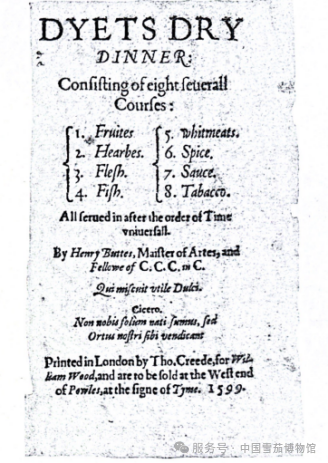 DYETS DRY
DINNER:
Consisting of eight seuerall
Courses:
1. Fruites 5. Whitmeats.
2. Hearbes. 6. Spice.
3. Flesh. 7. Sauce.
4. Fish. 8. Tabacco.
All serued in after the order of Time
vniuersall.
By Henry Buttes, Maister of Artes, and
Fellowe of C. C. C. in C.
Qui miscuit vtile Dulci.
Cicero.
Non nobis solum nati sumus, sed
Ortus nostri sibi vendicant
Printed in London by Tho. Creede, for Wil-
liam Wood, and are to be sold at the West end
of Powles, at the signe of Tyme. 1599.
服务号、中国雪茄博物馆